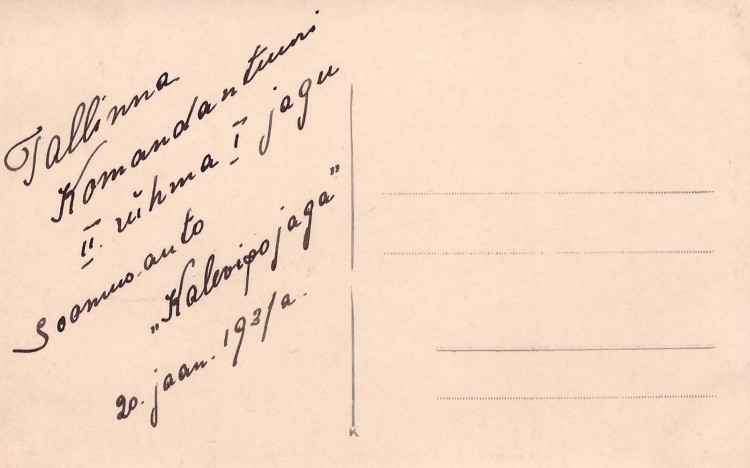 Tallinna
Komandantuuri
II. rühma I jagu
soomus.auto
"Kalevipojaga"
20. jaan. 1931 a.
K